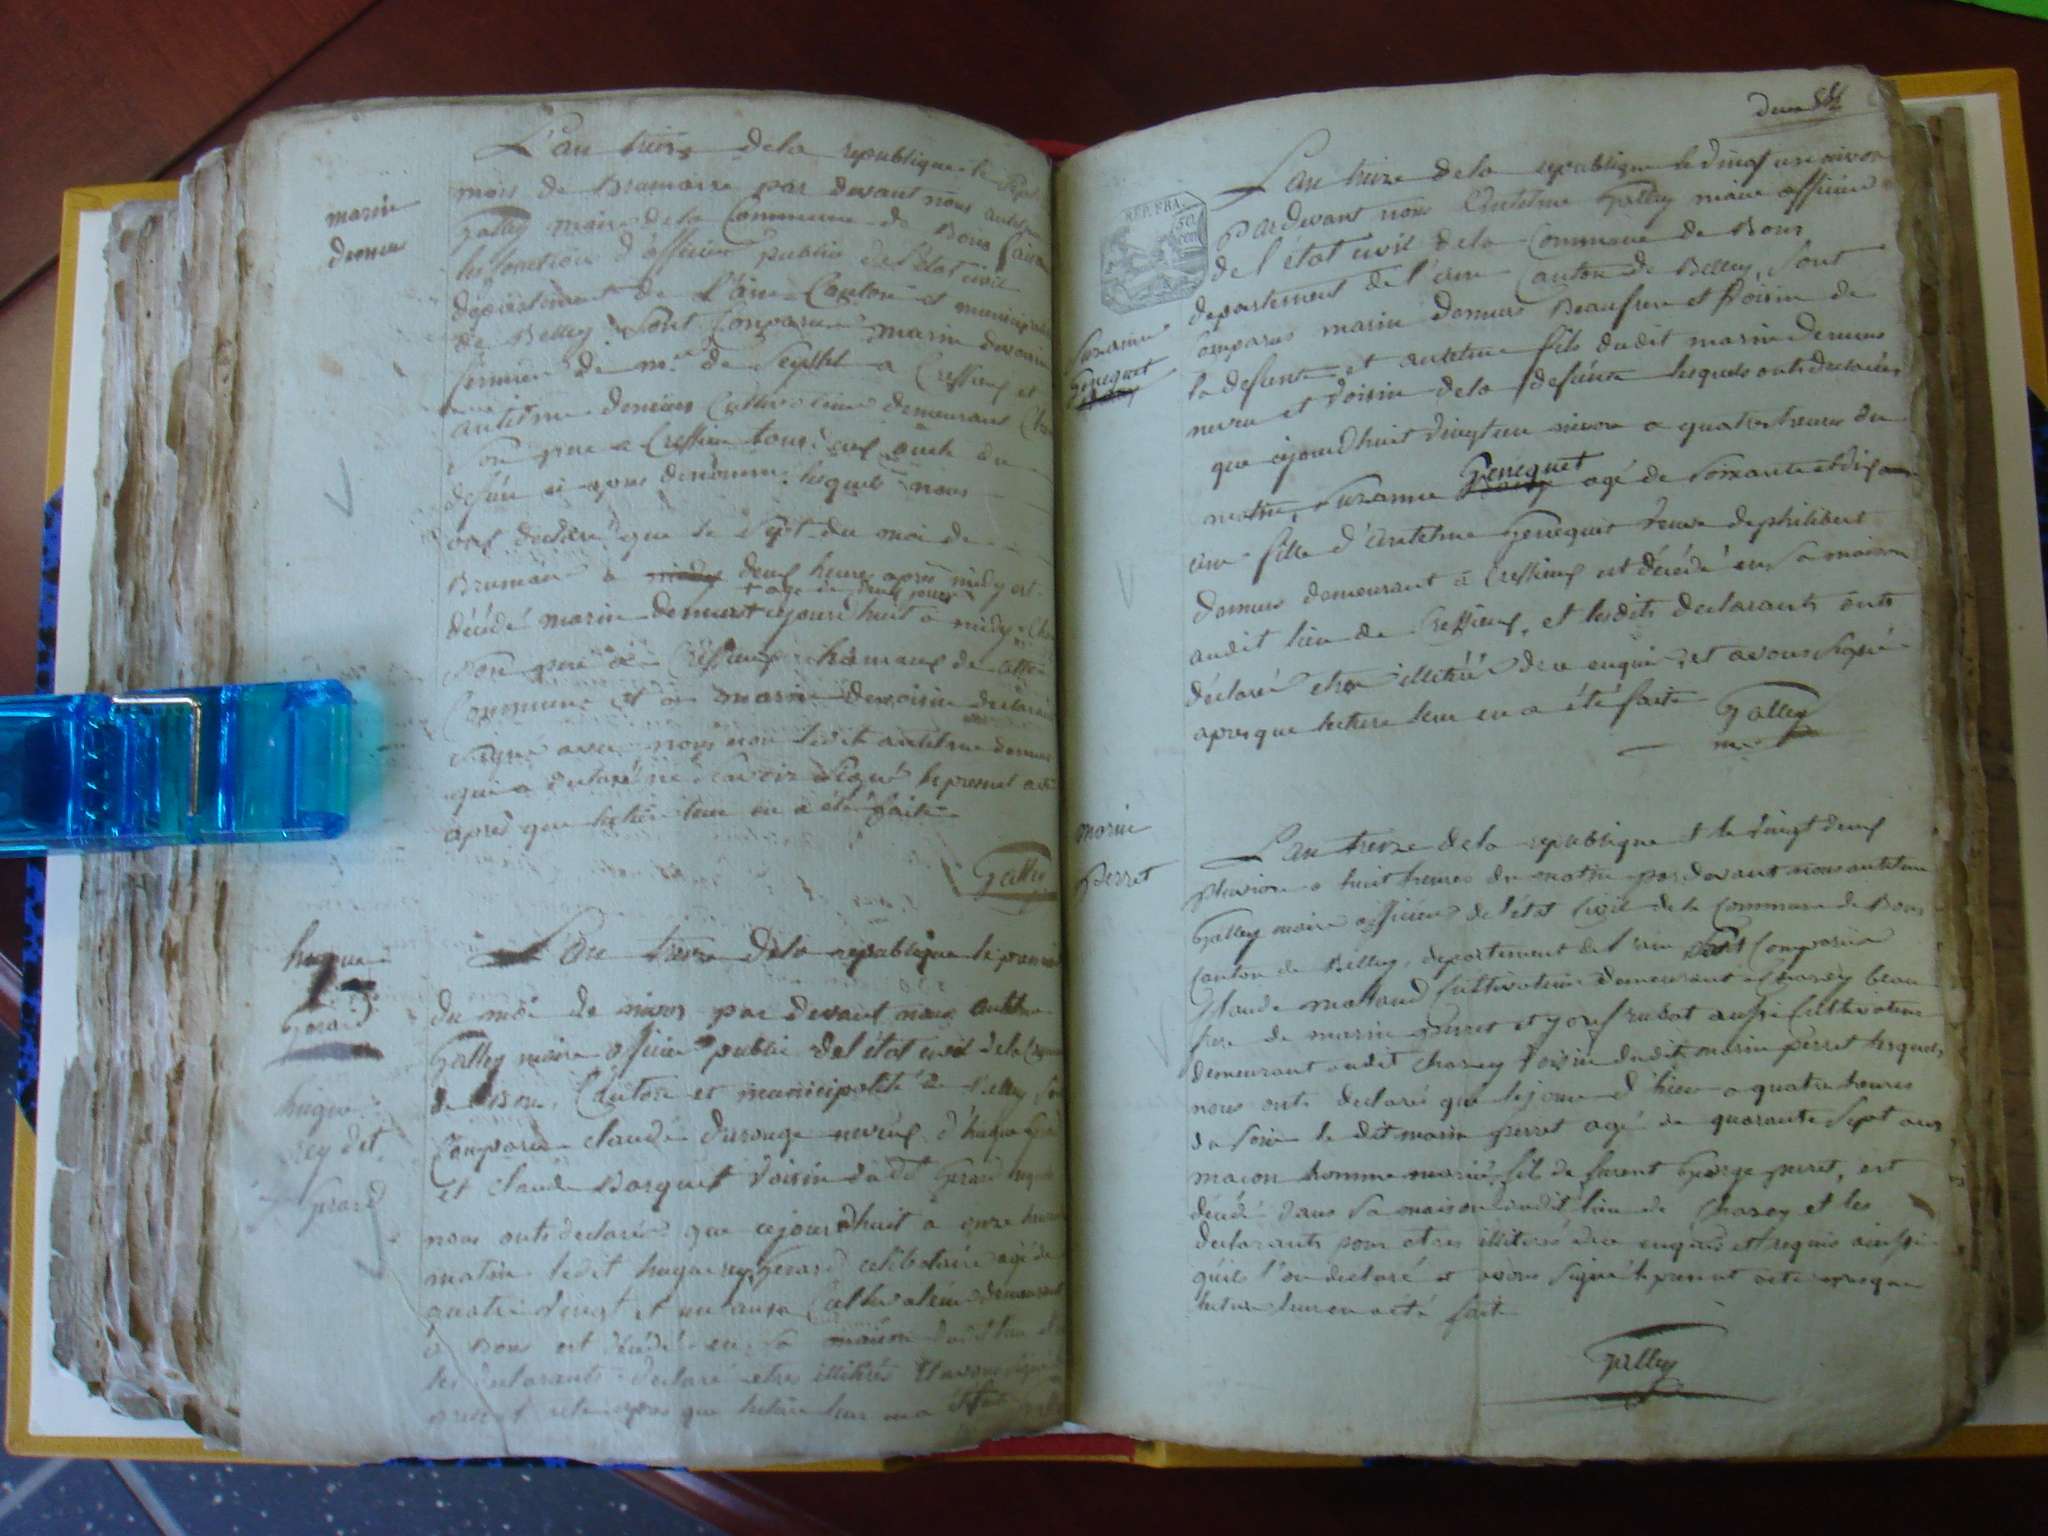 marin
demeur
L'an treize de la republique le sept
mois de Brumaire par devant nous antelme
Galley maire de la Commune de Bons faisant
les fonction d'officier public de l'état civil
département de l'ain Canton et municipalité
de Belley. Sont Comparu marin
fermier de mr. de Seyssel a Cressieu et
antelme demeurs Cultivateur demeurant Chez
Son pere a Cressieu tous
defun ci apres denommé. lesquels nous
ont declaré que le Sept du moi de
Brumaire a deux heures apres midy est
+ agé de deux jours
décédé marin demeurs + cejourd'huit a midy Chez
Son pere a Cressieux hameaux de cette
Commune et on marin
Signé avec nous non ledit antelme demeurs
qui a declaré ne Savoir Signé le present acte
apres que lecture leur en a été faite
Galley
hugue
Gerard
hugue
rey dit
gerard
L'an treize de la republique le premier
du moi de nivos par devant nous antelme
Galley maire officier public de l'état civil de la Commune
de Bons, Canton et municipalité de Belley Sont
Comparu claude neveux d'hugue
et claude Borquet Voisin dudt Gerard lesquels
nous onts declarés que cejourdhuit a onze heures
matin ledit hugue rey Gerard celibataire agé de
quatre vingt et un ans Cultivateur demeurant
a Bons est décédé en Sa maison dudit lieu et
les declarants declaré etres illitérés et avons signé le
present acte apres que lecture leur en a été faite
REP. FRA.
50
cen
Suzanne
Genequet
L'an treize de la republique le vingt un nivos
Pardevant nous Antelme Galley maire officier
de l'état civil de la Commune de Bons
departement de l'ain Canton de Belley, Sont
comparus marin demeurs Beaufrere et Voisin de
la defunte et antelme fils dudit marin demeurs
neveu et Voisin de la defunte lesquels onts declarés
que cejourdhuit vingt un nivos a quatre heures du
matin, Suzanne Genequet agé de Soixante et dix
ans fille d'Antelme Genequet Veuve de philibert
demeurs demeurant a Cressieux est décédé en Sa maison
audit lieu de Cressieux, et lesdits declarants onts
déclaré etre illitéré de ce enquis, et avons Signé
apres que lecture leur en a été faite
Galley
marin
Perret
L'an treize de la republique et le vingt deux
pluviose a huit heures du matin par devant nous antelme
Galley maire officier de l'état Civil de la Commune de Bons
canton de Belley, departement de l'ain Sont Comparus
Claude Cultivateur demeurant a Charey beau
frere de marin Perret et aussi Cultivateur
demeurant audit Charey Voisin dudit marin perret lesquels
nous onts declarés que le jour d'hier a quatre heures
du Soir le dit marin perret agé de quarante Sept ans
macon homme marié, fils de George perret, est
décédé dans Sa maison audit lieu de Charey et les
declarants pour etres illitérés de ce enquis et requis ainsi
qu'ils l'on declaré et avons Signé le present acte apres que
lecture leur en a été fait
Galley